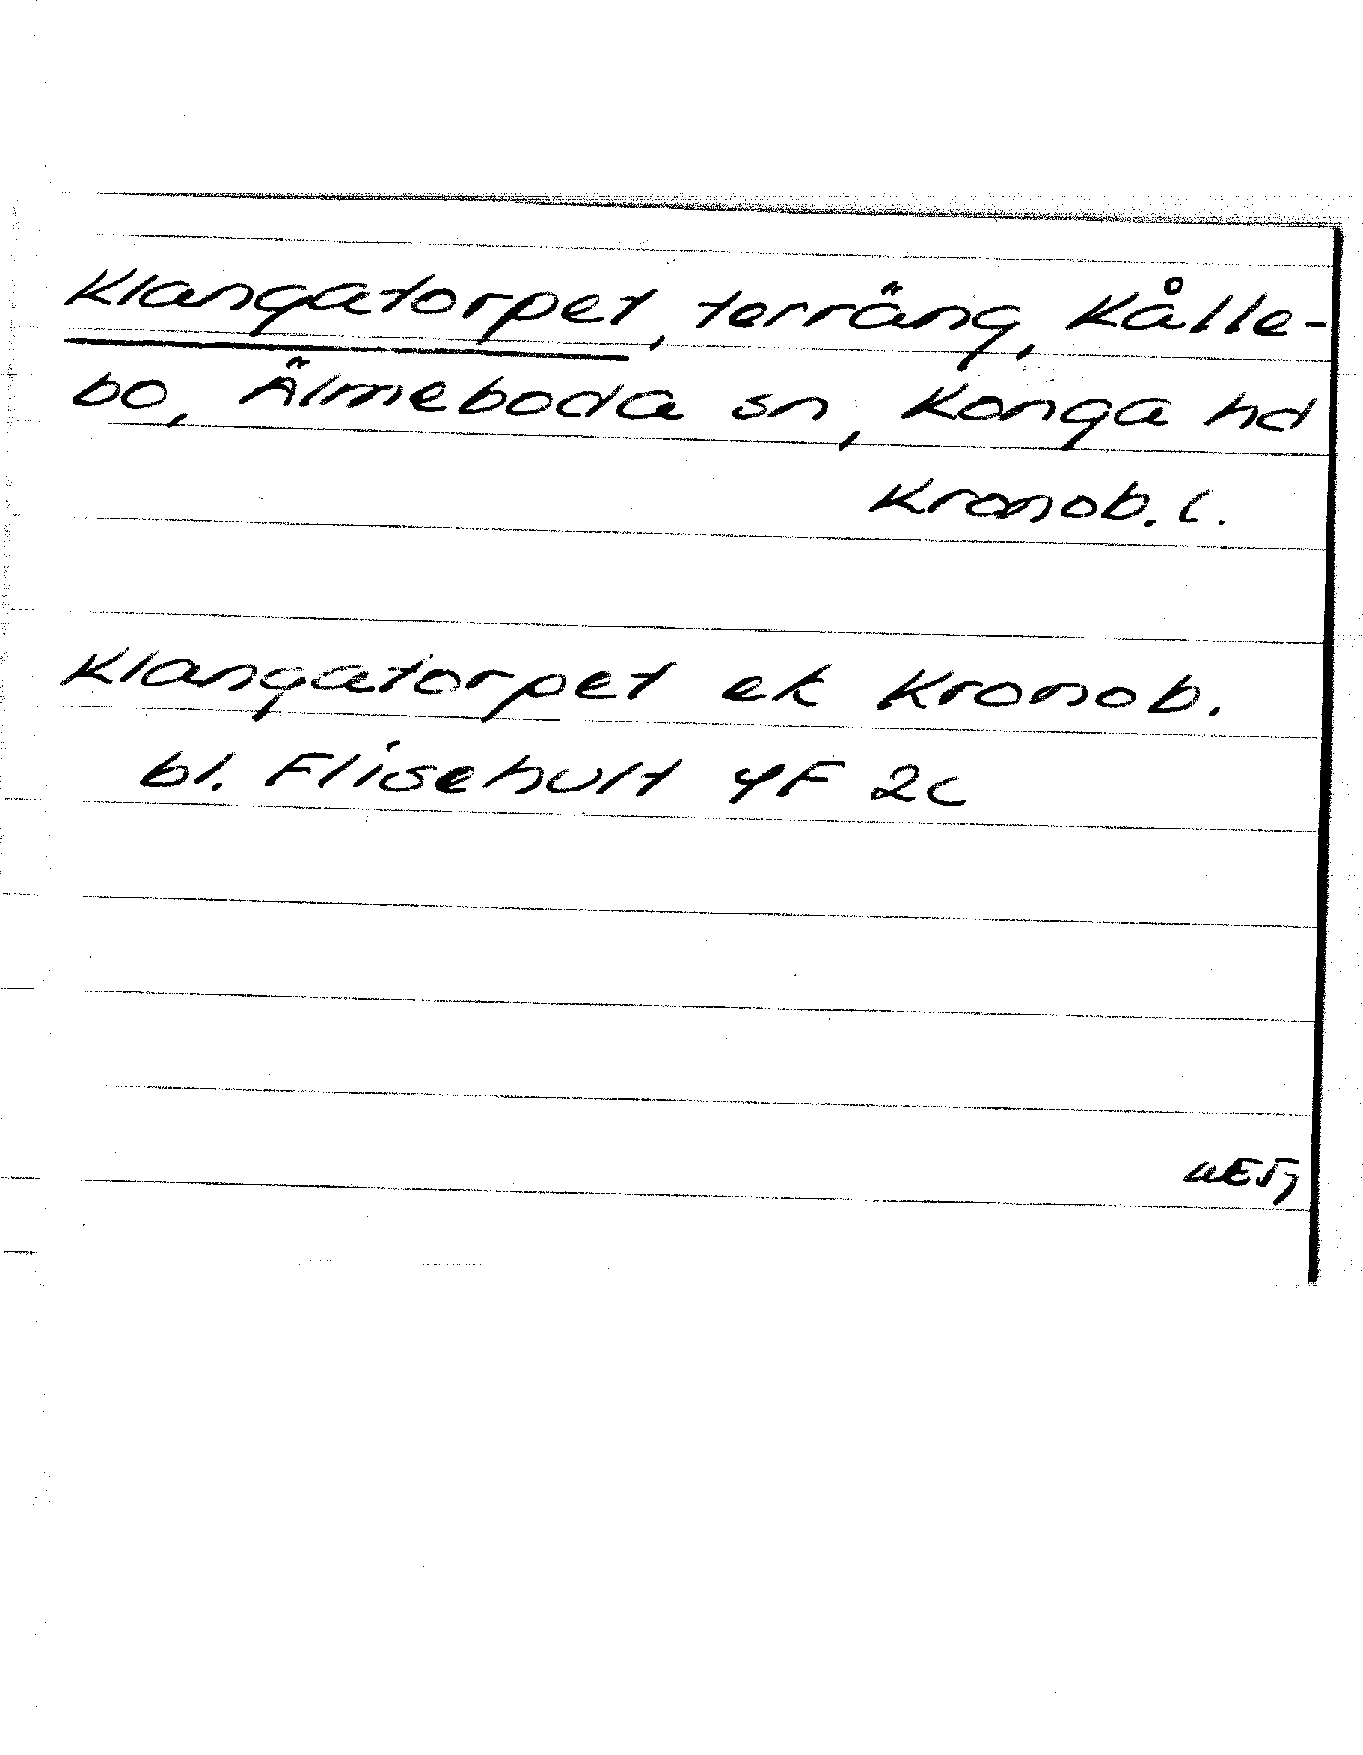 Klangatorpet, terräng, Kålle-
bo, Älmeboda sn, Konga hd
Kronob. l.
Klangatorpet ek Kronob.
bl. Flisehult 4F 2c